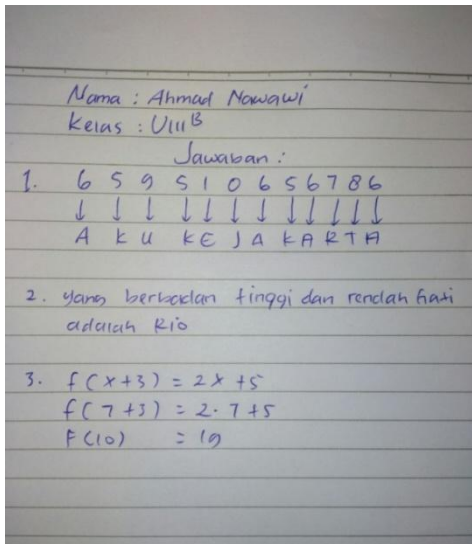 Nama : Ahmad Nawawi
Kelas : VIII B
Jawaban :
1. 6 5 9 5 1 0 6 5 6 7 8 6
↓ ↓ ↓ ↓ ↓ ↓ ↓ ↓ ↓ ↓ ↓ ↓
A K U K E J A K A R T A
2. yang berbadan tinggi dan rendah hati
adalah Rio
3. f(x+3) = 2x +5
f(7+3) = 2.7+5
F(10) = 19